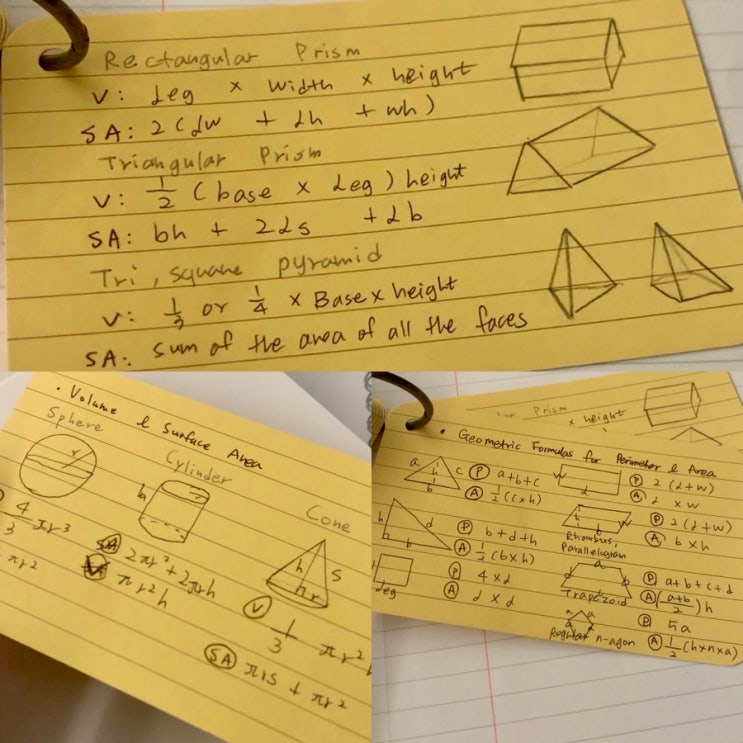 Rectangular Prism
V: Leg × Width × height
SA: 2(Lw + Lh + wh)
Triangular Prism
V: 1/2 (base × Leg) height
SA: bh + 2Ls + Lb
Tri, square pyramid
V: 1/3 or 1/4 × Base × height
SA: sum of the area of all the faces
• Volume & Surface Area
Sphere
r
4/3 πr³
πr²
Cylinder
h
SA 2πr² + 2πrh
V πr²h
Cone
h s
r
V 1/3 πr²h
SA πrs + πr²
Prism
× height
• Geometric Formulas for Perimeter & Area
a c
b
P a+b+c
A 1/2 (c×h)
h d
b
P b+d+h
A 1/2 (b×h)
Leg
P 4×d
A d×d
w
L
P 2(L+w)
A L×w
h
b
w
Rhombus,
Parallelogram
P 2(L+w)
A b×h
a
b
Trapezoid
P a+b+c+d
A (a+b/2)h
a a
a
Regular n-agon
P 5a
A 1/2 (h×n×a)